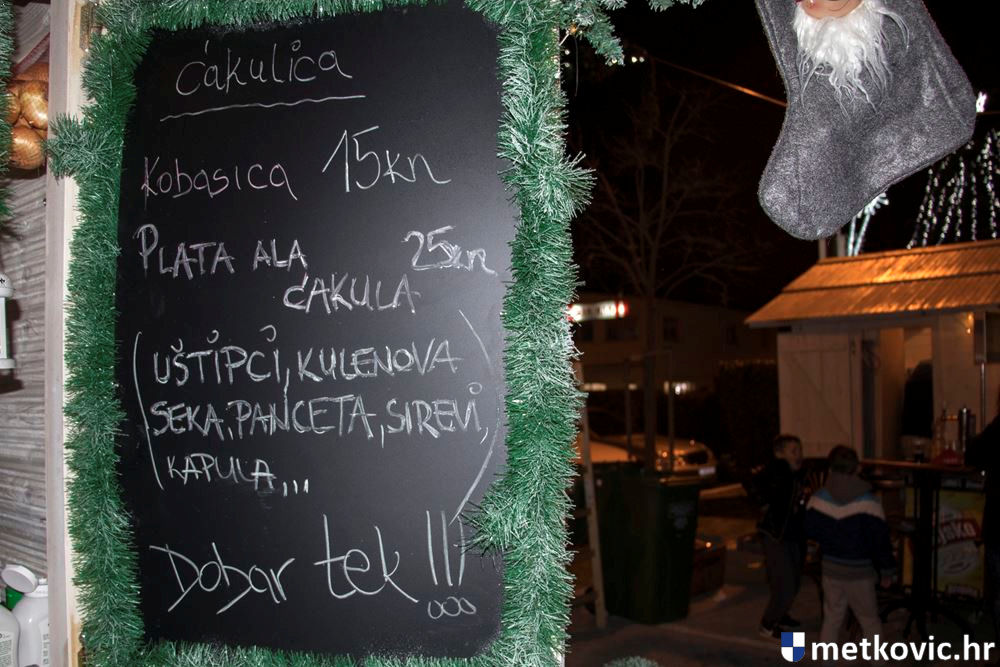 ćakulica
Kobasica 15kn
PLATA ALA 25kn
ĆAKULA
(UŠTIPCI, KULENOVA
SEKA, PANCETA, SIREVI,
KAPULA...)
Dobar tek !!!
metkovic.hr